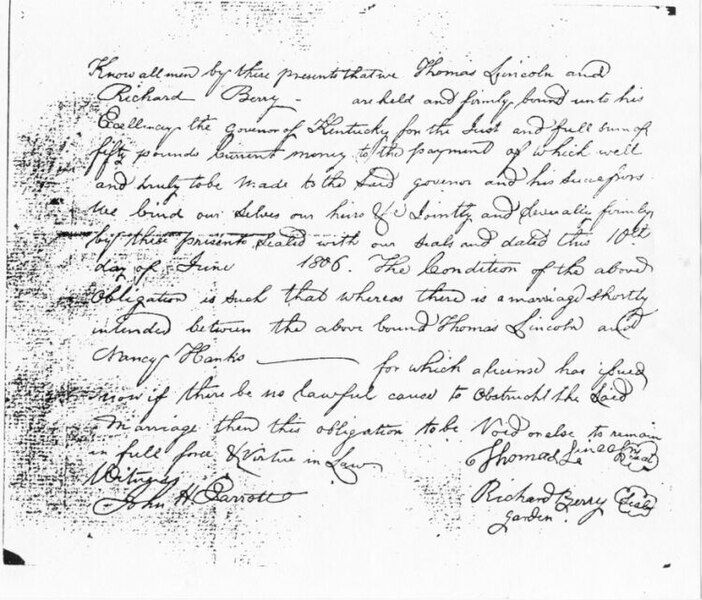 Know all men by these presents that we Thomas Lincoln and
Richard Berry — are held and firmly bound unto his
Excellency the governor of Kentucky for the Just and full sum of
fifty pounds Current money to the payment of which well
and truly to be Made to the Said governor and his Successors
We bind our Selves our heirs &c Jointly and Severally firmly
by these presents Sealed with our Seals and dated this 10th
day of June 1806. The Condition of the above
Obligation is such that whereas there is a marriage shortly
intended between the above bound Thomas Lincoln and
Nancy Hanks — for which a license has issued
now if there be no lawful cause to obstruct the Said
Marriage then this obligation to be Void or else to remain
in full force & Virtue in Law
Thomas Lincoln Seal
Witness
John H Parrott
Richard Berry Seal
garden.